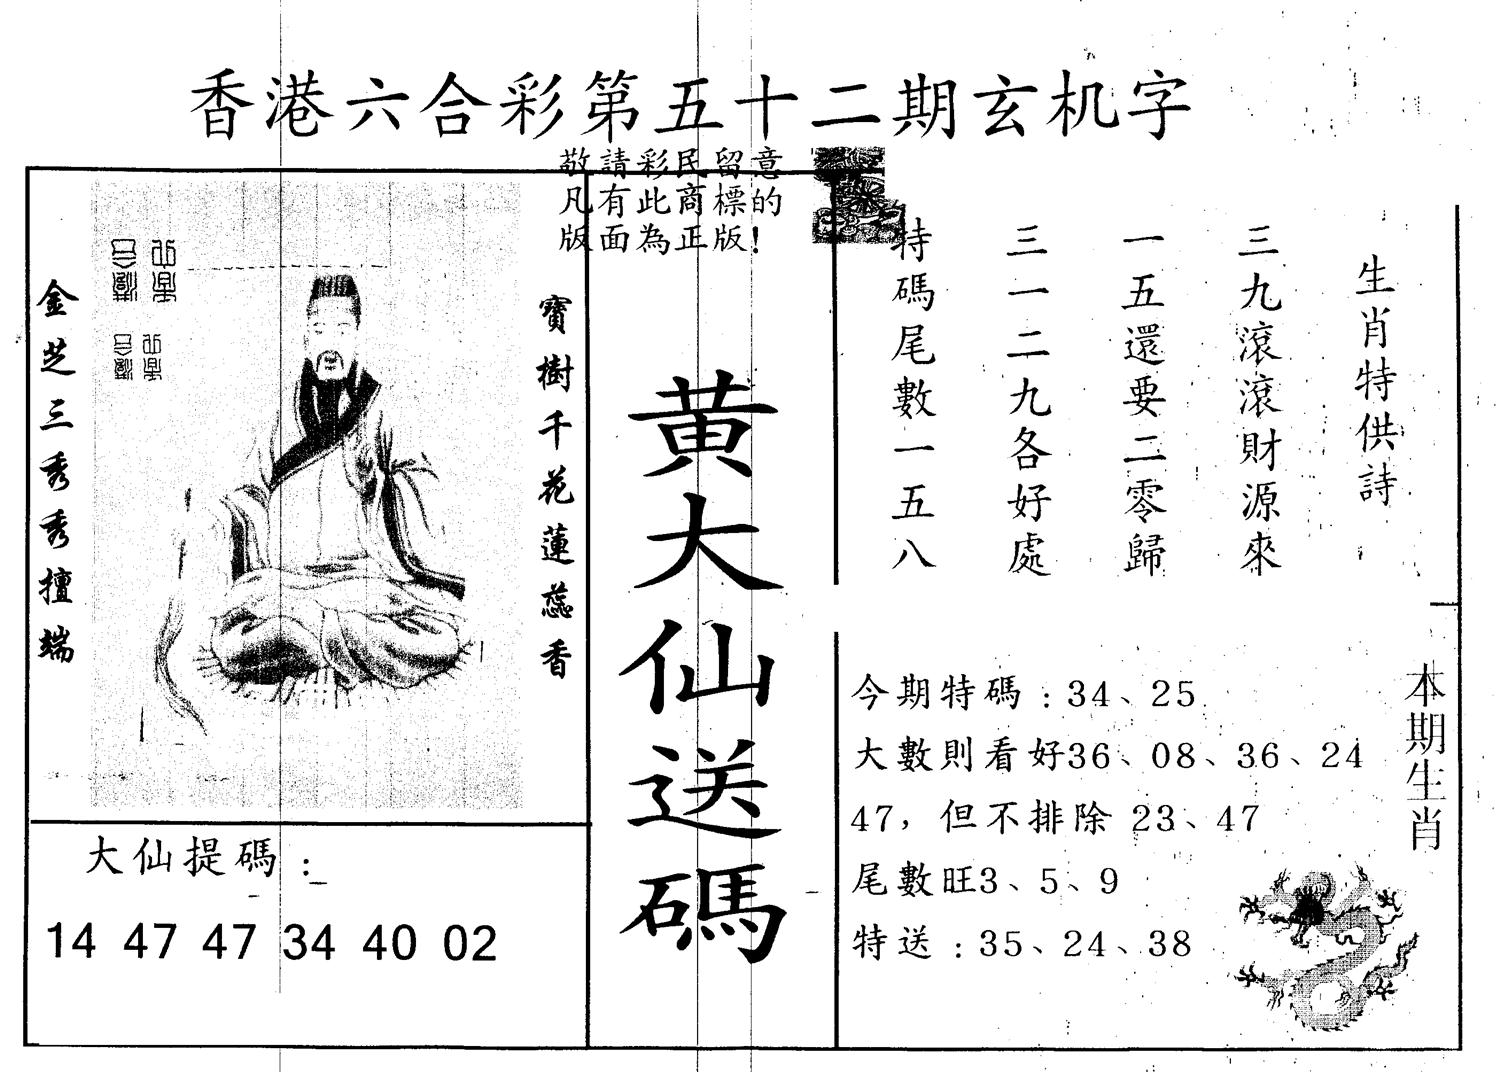 香港六合彩第五十二期玄机字
敬請彩民留意
凡有此商標的
版面為正版!
寶樹千花蓮蕊香
金芝三秀秀擅端
大仙提碼：
14 47 47 34 40 02
黃大仙送碼
生肖特供詩
三九滾滾財源來
一五還要二零歸
三一二九各好處
特碼尾數一五八
本期生肖
今期特碼：34、25
大數則看好36、08、36、24
47，但不排除 23、47
尾數旺3、5、9
特送：35、24、38